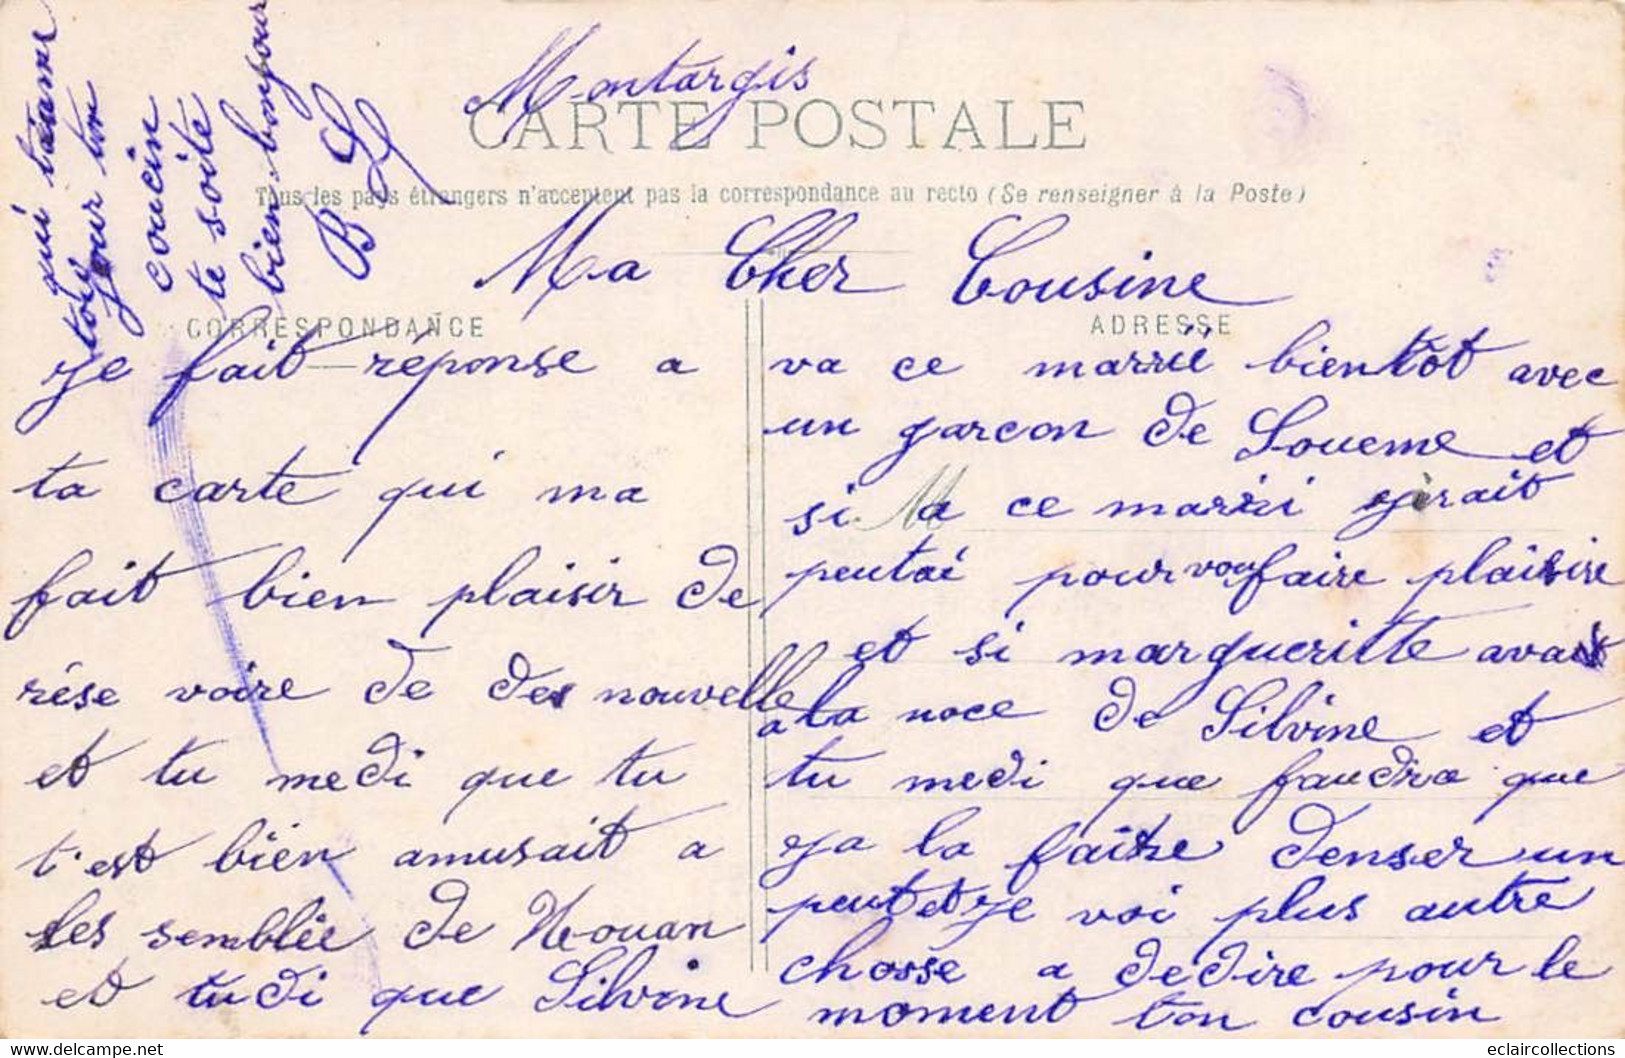 Montargis
CARTE POSTALE
Tous les pays étrangers n'acceptent pas la correspondance au recto (Se renseigner à la Poste)
Ma Cher Cousine
CORRESPONDANCE
ADRESSE
je fait réponse a
ta carte qui ma
fait bien plaisir de
rése voire de des nouvelle
et tu medi que tu
t'est bien amusait a
les semblée de Nouan
et tu di que Silvine
va ce marrié bientôt avec
un garcon de Soueme et
si a ce marrii gjrait
peutai pour vou faire plaisire
et si margueritte avait
a la noce de Silvine et
tu medi que faudra que
ga la faire denser un
peut et je voi plus autre
chosse a dedire pour le
moment ton cousin
qui t'aime
toujour ton
coucin
te soite
bien bonjour
B L
eclaircollections
© delcampe.net